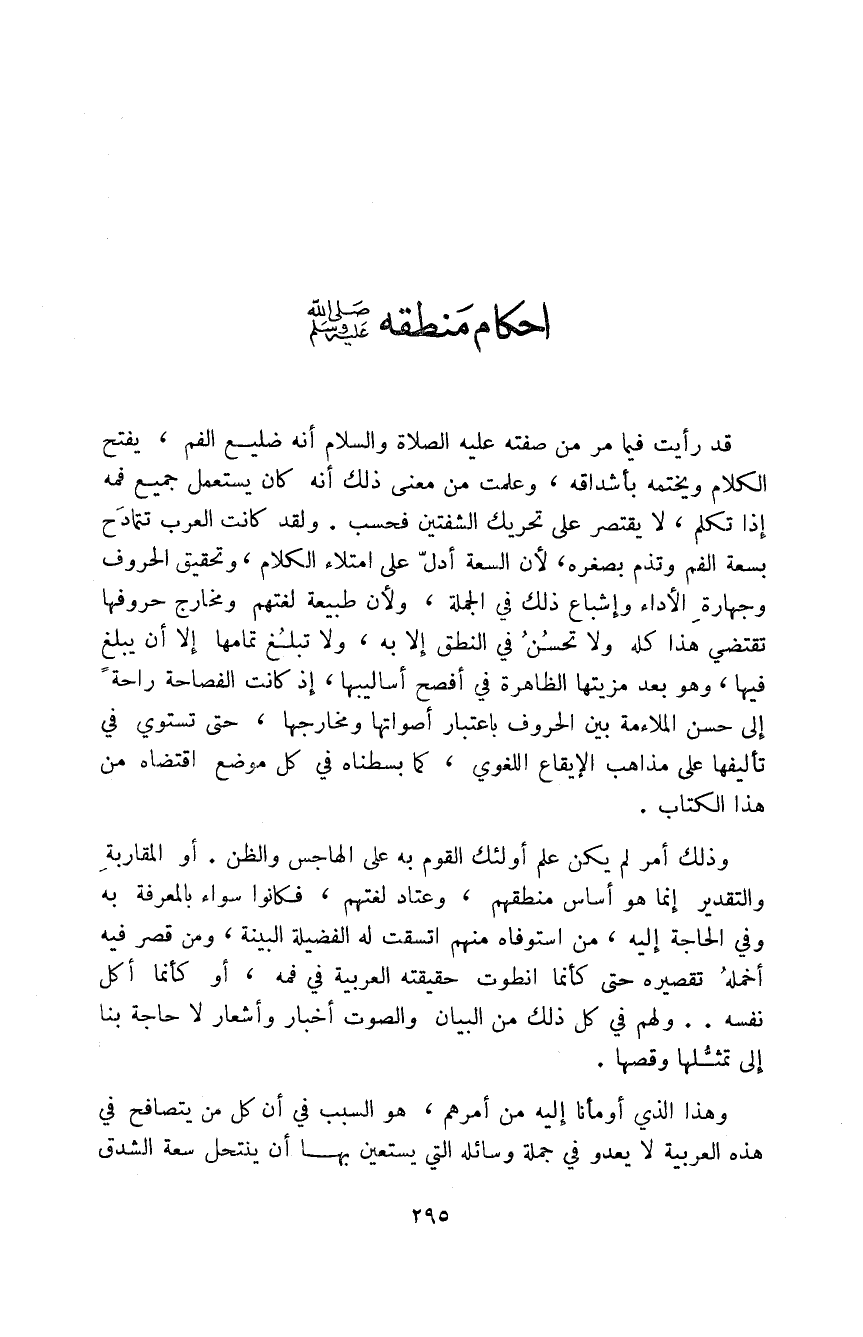 احكام مَنطقه صَلى الله عَليه وسَلم
قد رأيت فيما مر من صفته عليه الصلاة والسلام أنه ضليع الفم ، يفتح
الكلام ويختمه بأشداقه ، وعلمت من معنى ذلك أنه كان يستعمل جميع فمه
إذا تكلم ، لا يقتصر على تحريك الشفتين فحسب . ولقد كانت العرب تتمادَح
بسعة الفم وتذم بصغره، لأن السعة أدلّ على امتلاء الكلام ، وتحقيق الحروف
وجهارةِ الأداء وإشباع ذلك في الجملة ، ولأن طبيعة لغتهم ومخارج حروفها
تقتضي هذا كله ولا تحسُن ُ في النطق إلا به ، ولا تبلُغ تمامها إلا أن يبلغ
فيها ، وهو بعد مزيتها الظاهرة في أفصح أساليبها ، إذ كانت الفصاحة راحة ً
إلى حسن الملاءمة بين الحروف باعتبار أصواتها ومخارجها ، حتى تستوي في
تأليفها على مذاهب الإيقاع اللغوي ، كما بسطناه في كل موضع اقتضاه من
هذا الكتاب .
وذلك أمر لم يكن علم أولئك القوم به على الهاجس والظن . أو المقاربةِ
والتقدير إنما هو أساس منطقهم ، وعتاد لغتهم ، فكانوا سواء بالمعرفة به
وفي الحاجة إليه ، من استوفاه منهم اتسقت له الفضيلة البينة ، ومن قصر فيه
أخملهُ تقصيره حتى كأنما انطوت حقيقته العربية في فمه ، أو كأنما أكل
نفسه . . ولهم في كل ذلك من البيان والصوت أخبار وأشعار لا حاجة بنا
إلى تمثُّلها وقصها .
وهذا الذي أومأنا إليه من أمرهم ، هو السبب في أن كل من يتصافح في
هذه العربية لا يعدو في جملة وسائله التي يستعين بهـا أن ينتحل سعة الشدق
٢٩٥